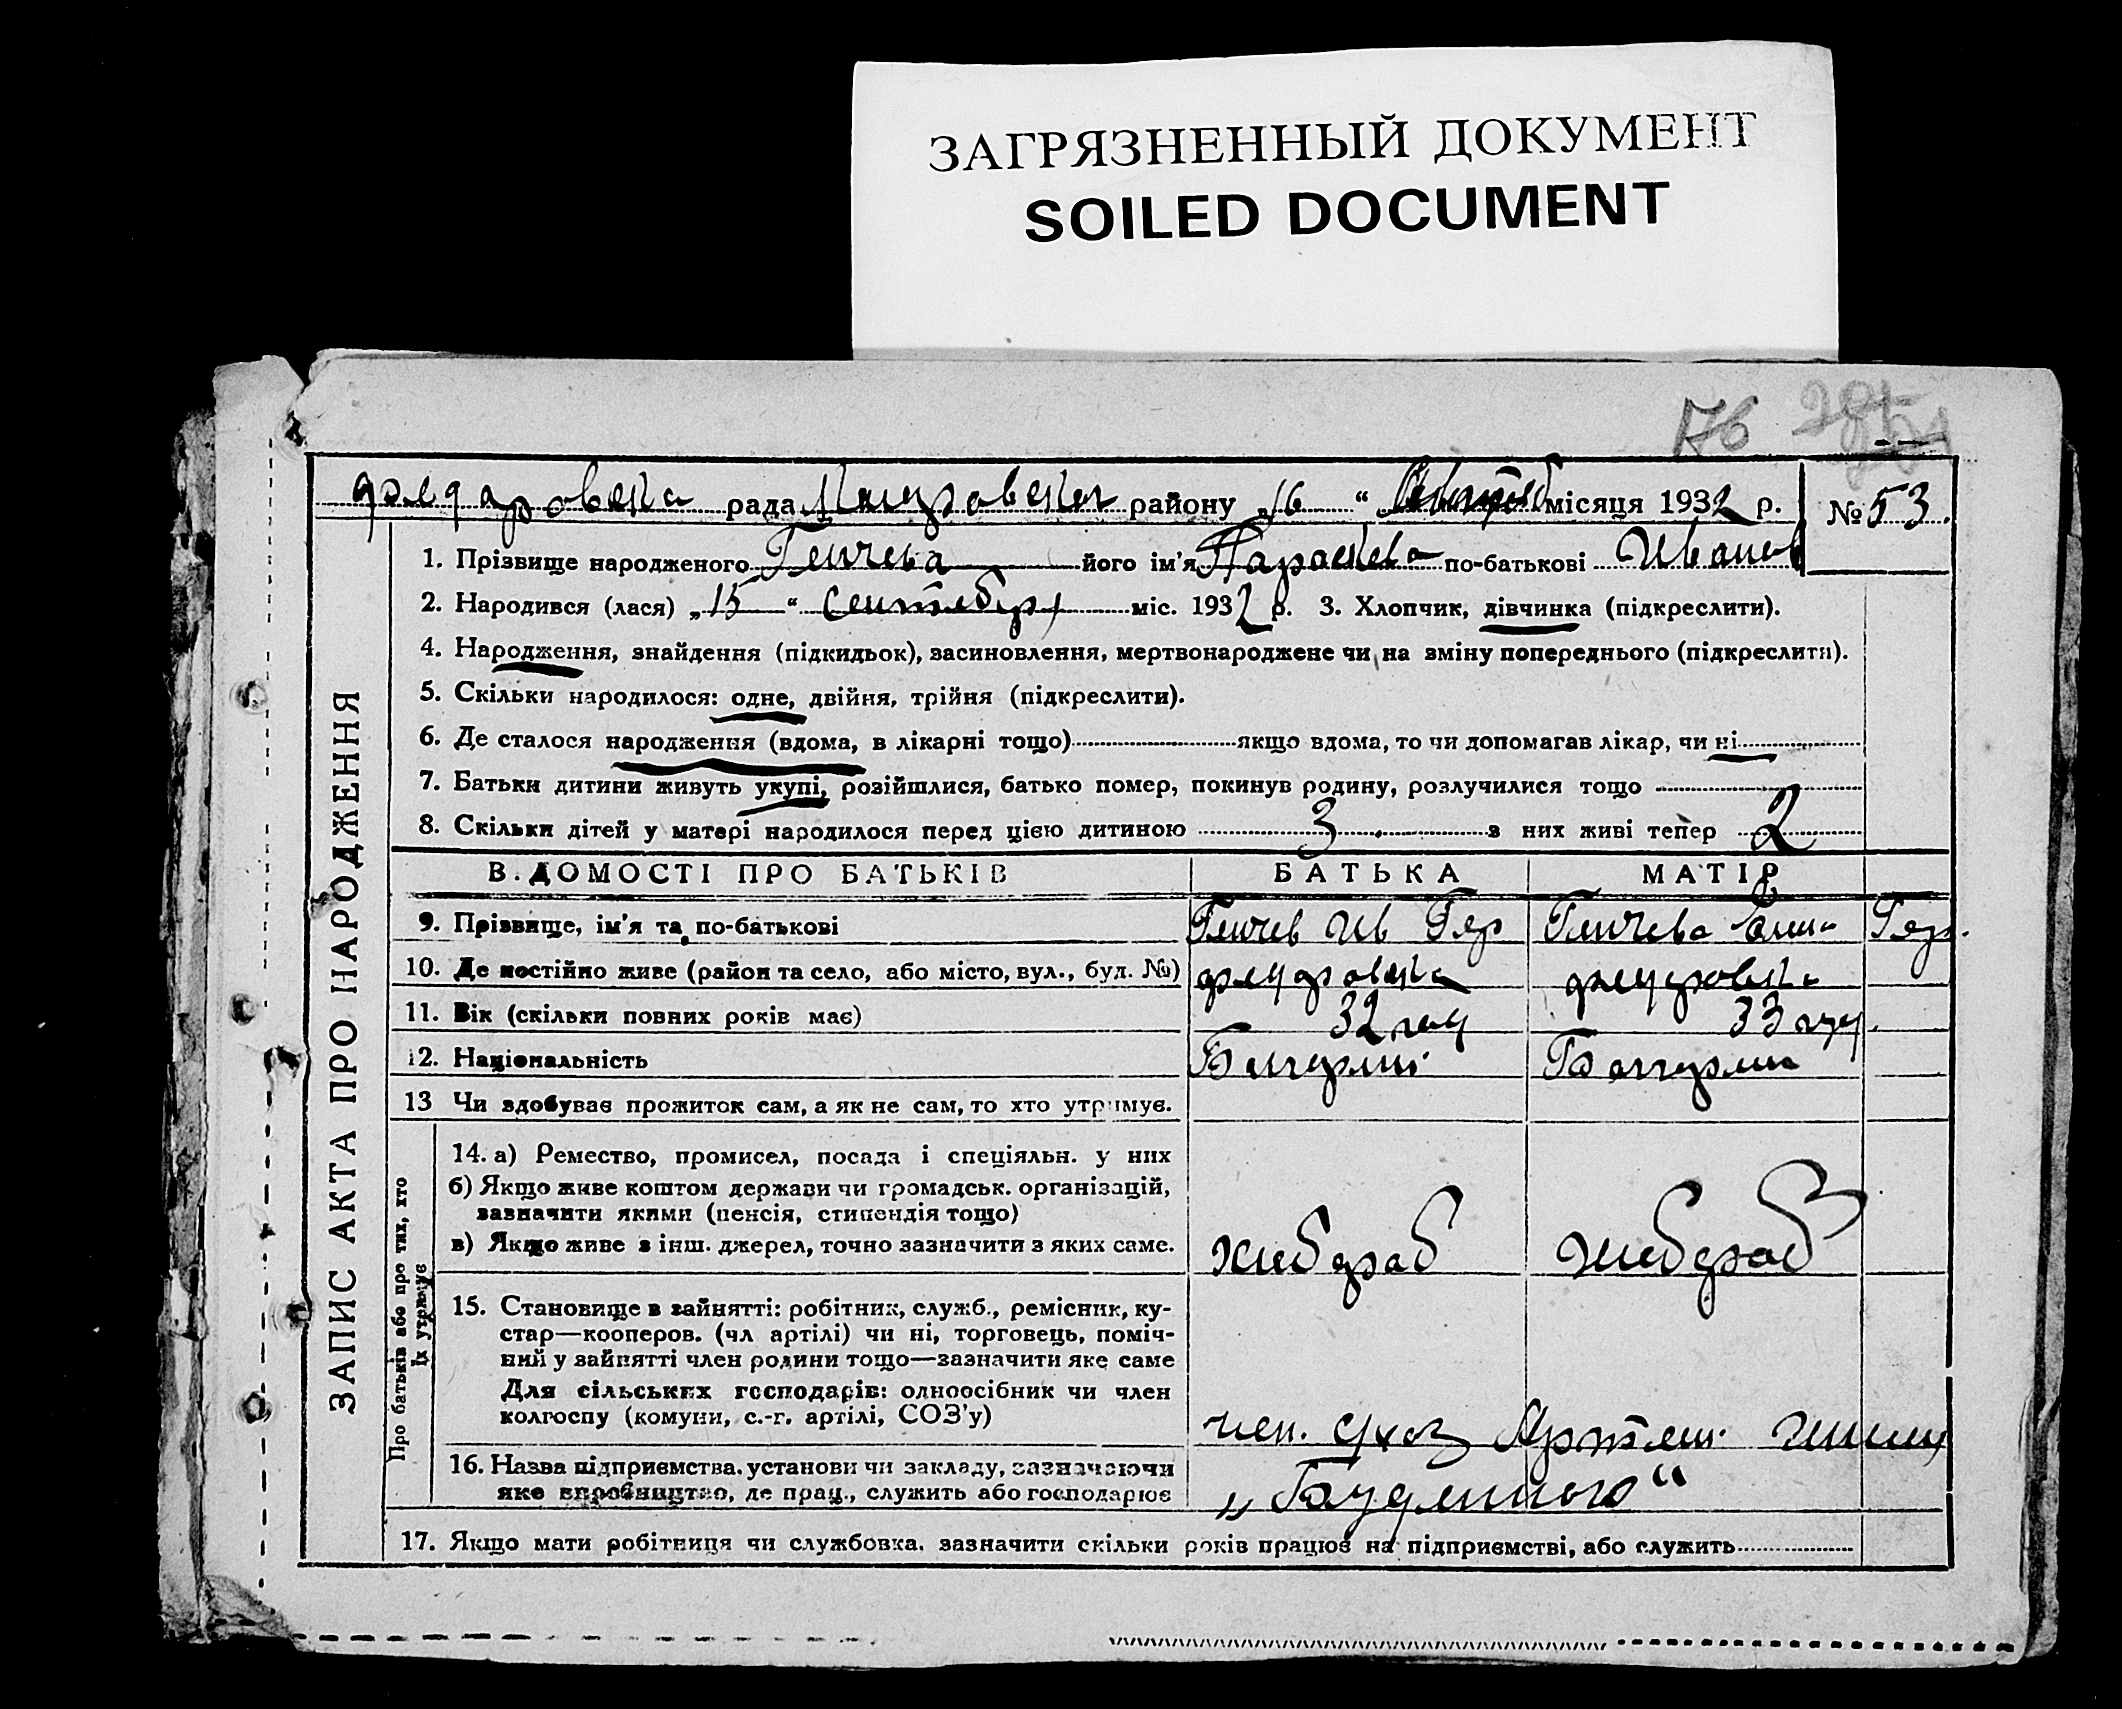 ЗАГРЯЗНЕННЫЙ ДОКУМЕНТ
SOILED DOCUMENT
176
рада району „16 “ місяця 1932 р. № 53.
1. Прізвище народженого Генчева його ім'я Параскева по-батькові Иванов
2. Народився (лася) „15 “ сентября міс. 1932 р. 3. Хлопчик, дівчинка (підкреслити).
4. Народження, знайдення (підкидьок), засиновлення, мертвонароджене чи на зміну попереднього (підкреслити).
5. Скільки народилося: одне, двійня, трійня (підкреслити).
6. Де сталося народження (вдома, в лікарні тощо) якщо вдома, то чи допомагав лікар, чи ні
7. Батьки дитини живуть укупі, розійшлися, батько помер, покинув родину, розлучилися тощо
8. Скільки дітей у матері народилося перед цією дитиною 3 з них живі тепер 2
В.ДОМОСТІ ПРО БАТЬКІВ БАТЬКА МАТІР
9. Прізвище, ім'я та по-батькові Генчев Ив Гер Генчева Гер.
10. Де постійно живе (район та село, або місто, вул., буд. №)
11. Вік (скільки повних років має) 32 год 33 год.
12. Національність
13 Чи здобуває прожиток сам, а як не сам, то хто утримує.
14. а) Ремество, промисел, посада і спеціяльн. у них
б) Якщо живе коштом держави чи громадськ. організацій,
зазначити якими (пенсія, стипендія тощо)
в) Якщо живе з інш. джерел, точно зазначити з яких саме. хлебороб хлебороб
15. Становище в зайнятті: робітник, служб., ремісник, ку-
стар—кооперов. (чл артілі) чи ні, торговець, поміч-
ний у зайнятті член родини тощо—зазначити яке саме
Для сільських господарів: одноосібник чи член
колгоспу (комуни, с.-г. артілі, СОЗ'у) член.
16. Назва підприємства, установи чи закладу, зазначаючи
яке виробництво, де прац., служить або господарює „Буденного“
17. Якщо мати робітниця чи службовка, зазначити скільки років працює на підприємстві, або служить
ЗАПИС АКТА ПРО НАРОДЖЕННЯ
Про батьків або про тих, хто
їх утримує